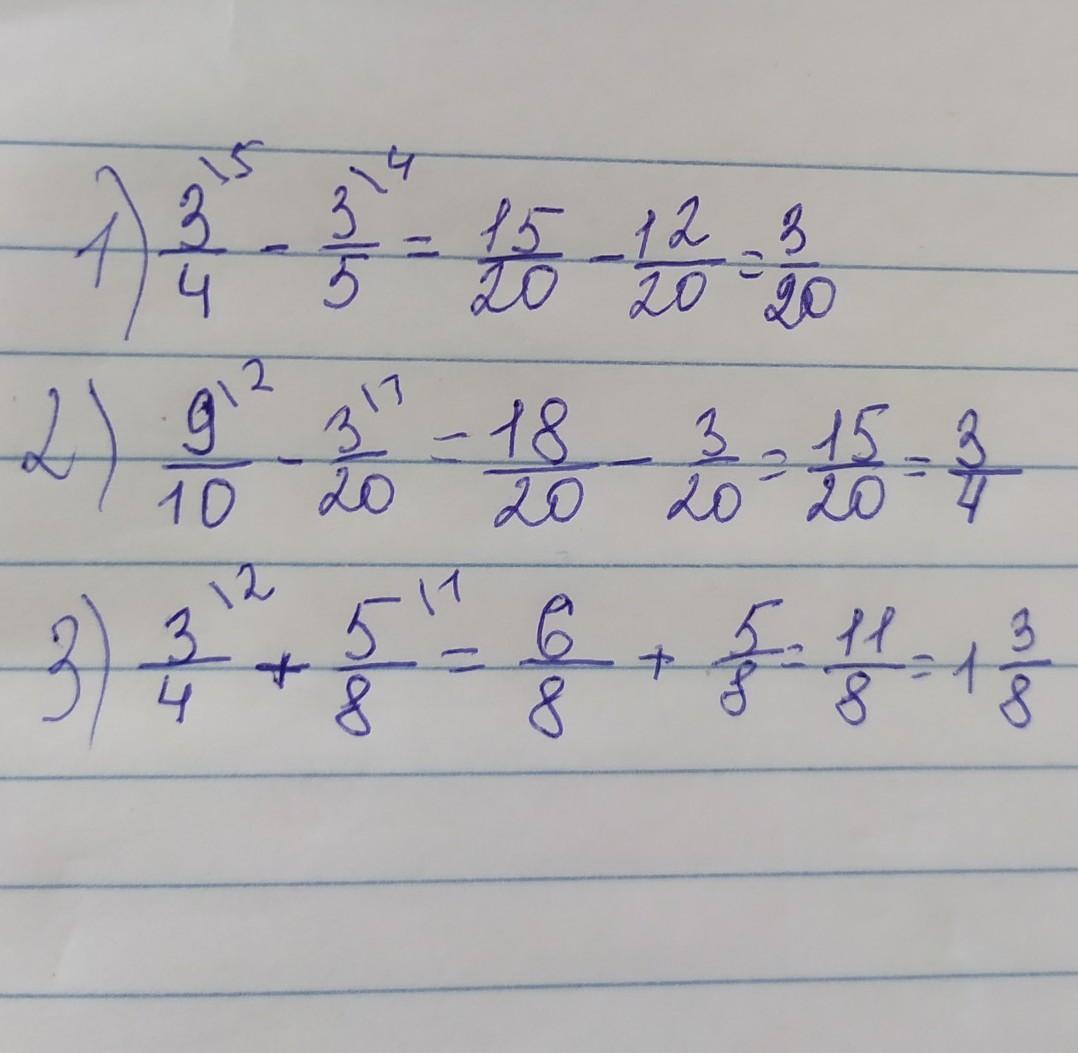 1) 3/4\5 - 3/5\4 = 15/20 - 12/20 = 3/20
2) 9/10\2 - 3/20\1 = 18/20 - 3/20 = 15/20 = 3/4
3) 3/4\2 + 5/8\1 = 6/8 + 5/8 = 11/8 = 1 3/8